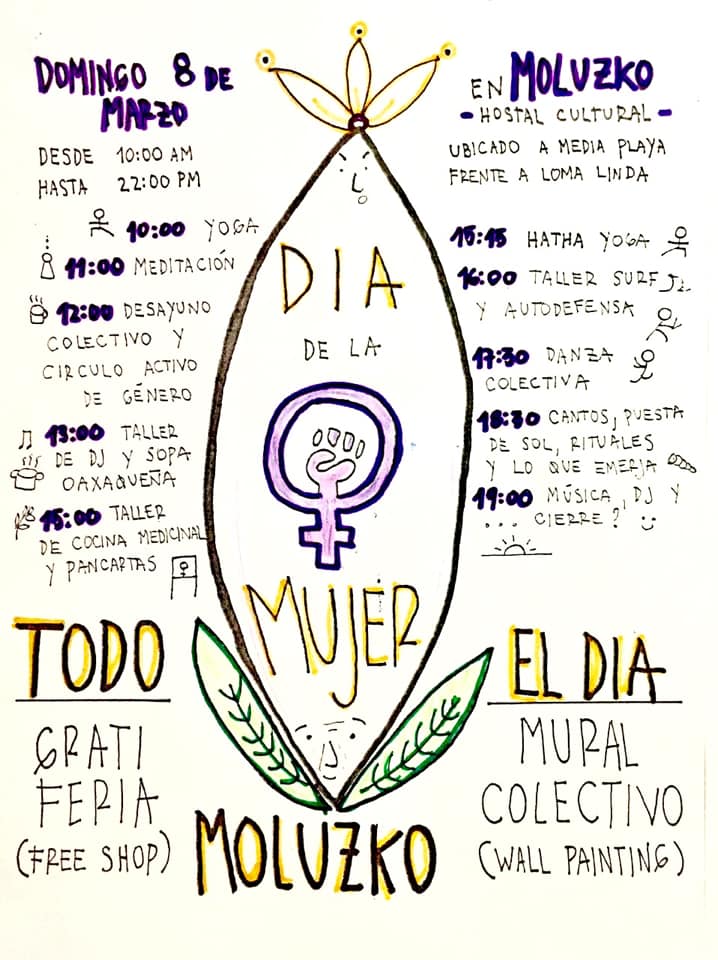 DOMINGO 8 DE
MARZO
DESDE 10:00 AM
HASTA 22:00 PM
10:00 YOGA
11:00 MEDITACIÓN
12:00 DESAYUNO
COLECTIVO Y
CIRCULO ACTIVO
DE GÉNERO
13:00 TALLER
DE DJ Y SOPA
OAXAQUEÑA
15:00 TALLER
DE COCINA MEDICINAL
Y PANCARTAS
EN MOLUZKO
- HOSTAL CULTURAL -
UBICADO A MEDIA PLAYA
FRENTE A LOMA LINDA
15:15 HATHA YOGA
16:00 TALLER SURF
Y AUTODEFENSA
17:30 DANZA
COLECTIVA
18:30 CANTOS, PUESTA
DE SOL, RITUALES
Y LO QUE EMERJA
19:00 MÚSICA, DJ Y
... CIERRE? :)
DIA
DE LA
MUJER
TODO
GRATI
FERIA
(FREE SHOP)
EL DIA
MURAL
COLECTIVO
(WALL PAINTING)
MOLUZKO